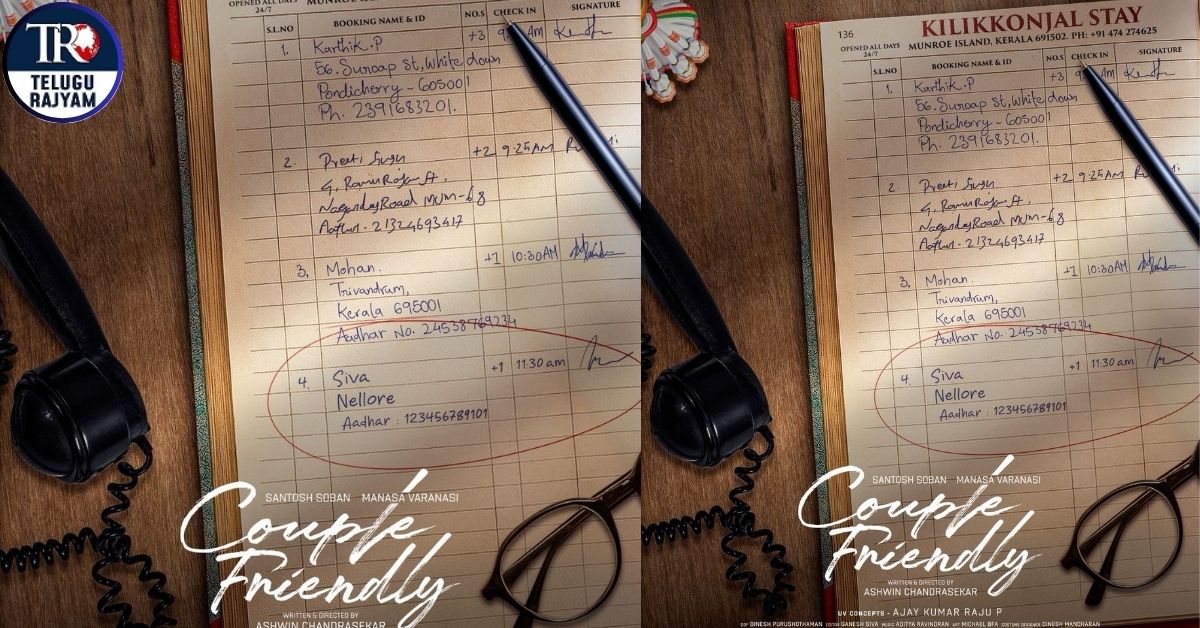 TR
TELUGU
RAJYAM
OPENED ALL DAYS
24/7
S.L.NO BOOKING NAME & ID NO.S CHECK IN SIGNATURE
1. Karthik.P +3 AM
56, Suroap St, White down
Pondicherry - 605001
Ph. 2391683201.
2. Preeti Singh +2 9.25AM
Road MUM-68
- 21324693417
3. Mohan. +1 10:30AM
Trivandrum,
Kerala 695001
Aadhar No. 24538769234
4. Siva +1 11:30 am
Nellore
Aadhar : 123456789101
SANTOSH SOBAN MANASA VARANASI
Couple
Friendly
WRITTEN & DIRECTED BY
ASHWIN CHANDRASEKAR
136
KILIKKONJAL STAY
OPENED ALL DAYS
24/7
MUNROE ISLAND, KERALA 691502. PH: +91 474 274625
S.L.NO BOOKING NAME & ID NO.S CHECK IN SIGNATURE
1. Karthik.P +3 AM
56, Suroap St, White down
Pondicherry - 605001
Ph. 2391683201.
2. Preeti Singh +2 9.25AM
Road MUM-68
- 21324693417
3. Mohan. +1 10:30AM
Trivandrum,
Kerala 695001
Aadhar No. 24538769234
4. Siva +1 11:30 am
Nellore
Aadhar : 123456789101
SANTOSH SOBAN MANASA VARANASI
Couple
Friendly
WRITTEN & DIRECTED BY
ASHWIN CHANDRASEKAR
UV CONCEPTS - AJAY KUMAR RAJU P
DOP DINESH PURUSHOTHAMAN EDITOR GANESH SIVA MUSIC ADITYA RAVINDRAN ART MICHAEL BFA COSTUME DESIGNER DINESH MANOHARAN